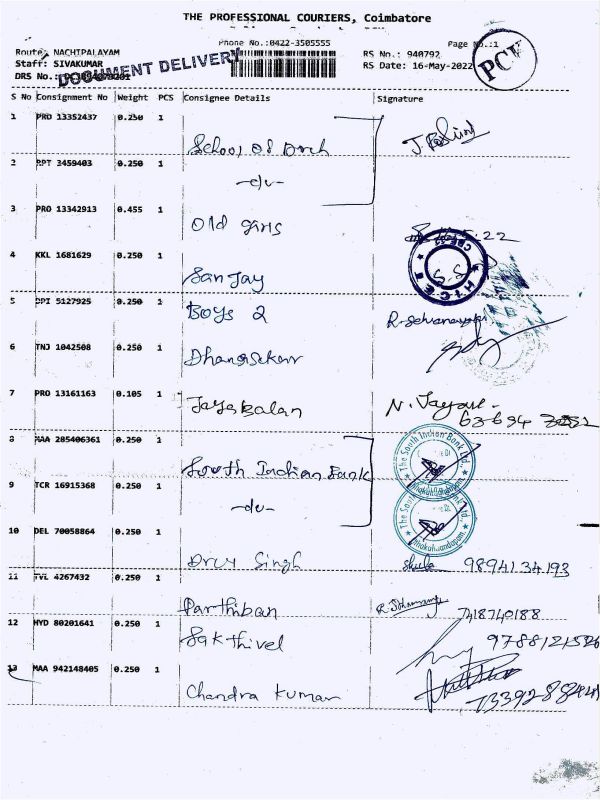 THE PROFESSIONAL COURIERS, Coimbatore
Phone No.:0422-3505555
Page No.:1
Route: NACHIPALAYAM
RS No.: 940792
Staff: SIVAKUMAR
RS Date: 16-May-2022
DRS No.:
DOCUMENT DELIVERY
PCV
S No Consignment No Weight PCS Consignee Details Signature
1 PRO 13352437 0.250 1
School Of Arch
2 RPT 3459403 0.250 1
-do-
3 PRO 13342913 0.455 1
Old girls
4 KKL 1681629 0.250 1
HICET
Sanjay
5 PPI 5127925 0.250 1
Boys 2
6 TNJ 1042508 0.250 1
Dhanasekar
7 PRO 13161163 0.105 1
Jayabalan
8 MAA 285406361 0.250 1
South Indian Bank
The South Indian Bank Ltd.
9 TCR 16915368 0.250 1
-do-
10 DEL 70058864 0.250 1
Singh 98941 34193
11 TVL 4267432 0.250 1
Parthiban 7418740188
12 HYD 80201641 0.250 1
Sakthivel
13 MAA 942148405 0.250 1
Chandra Kumar